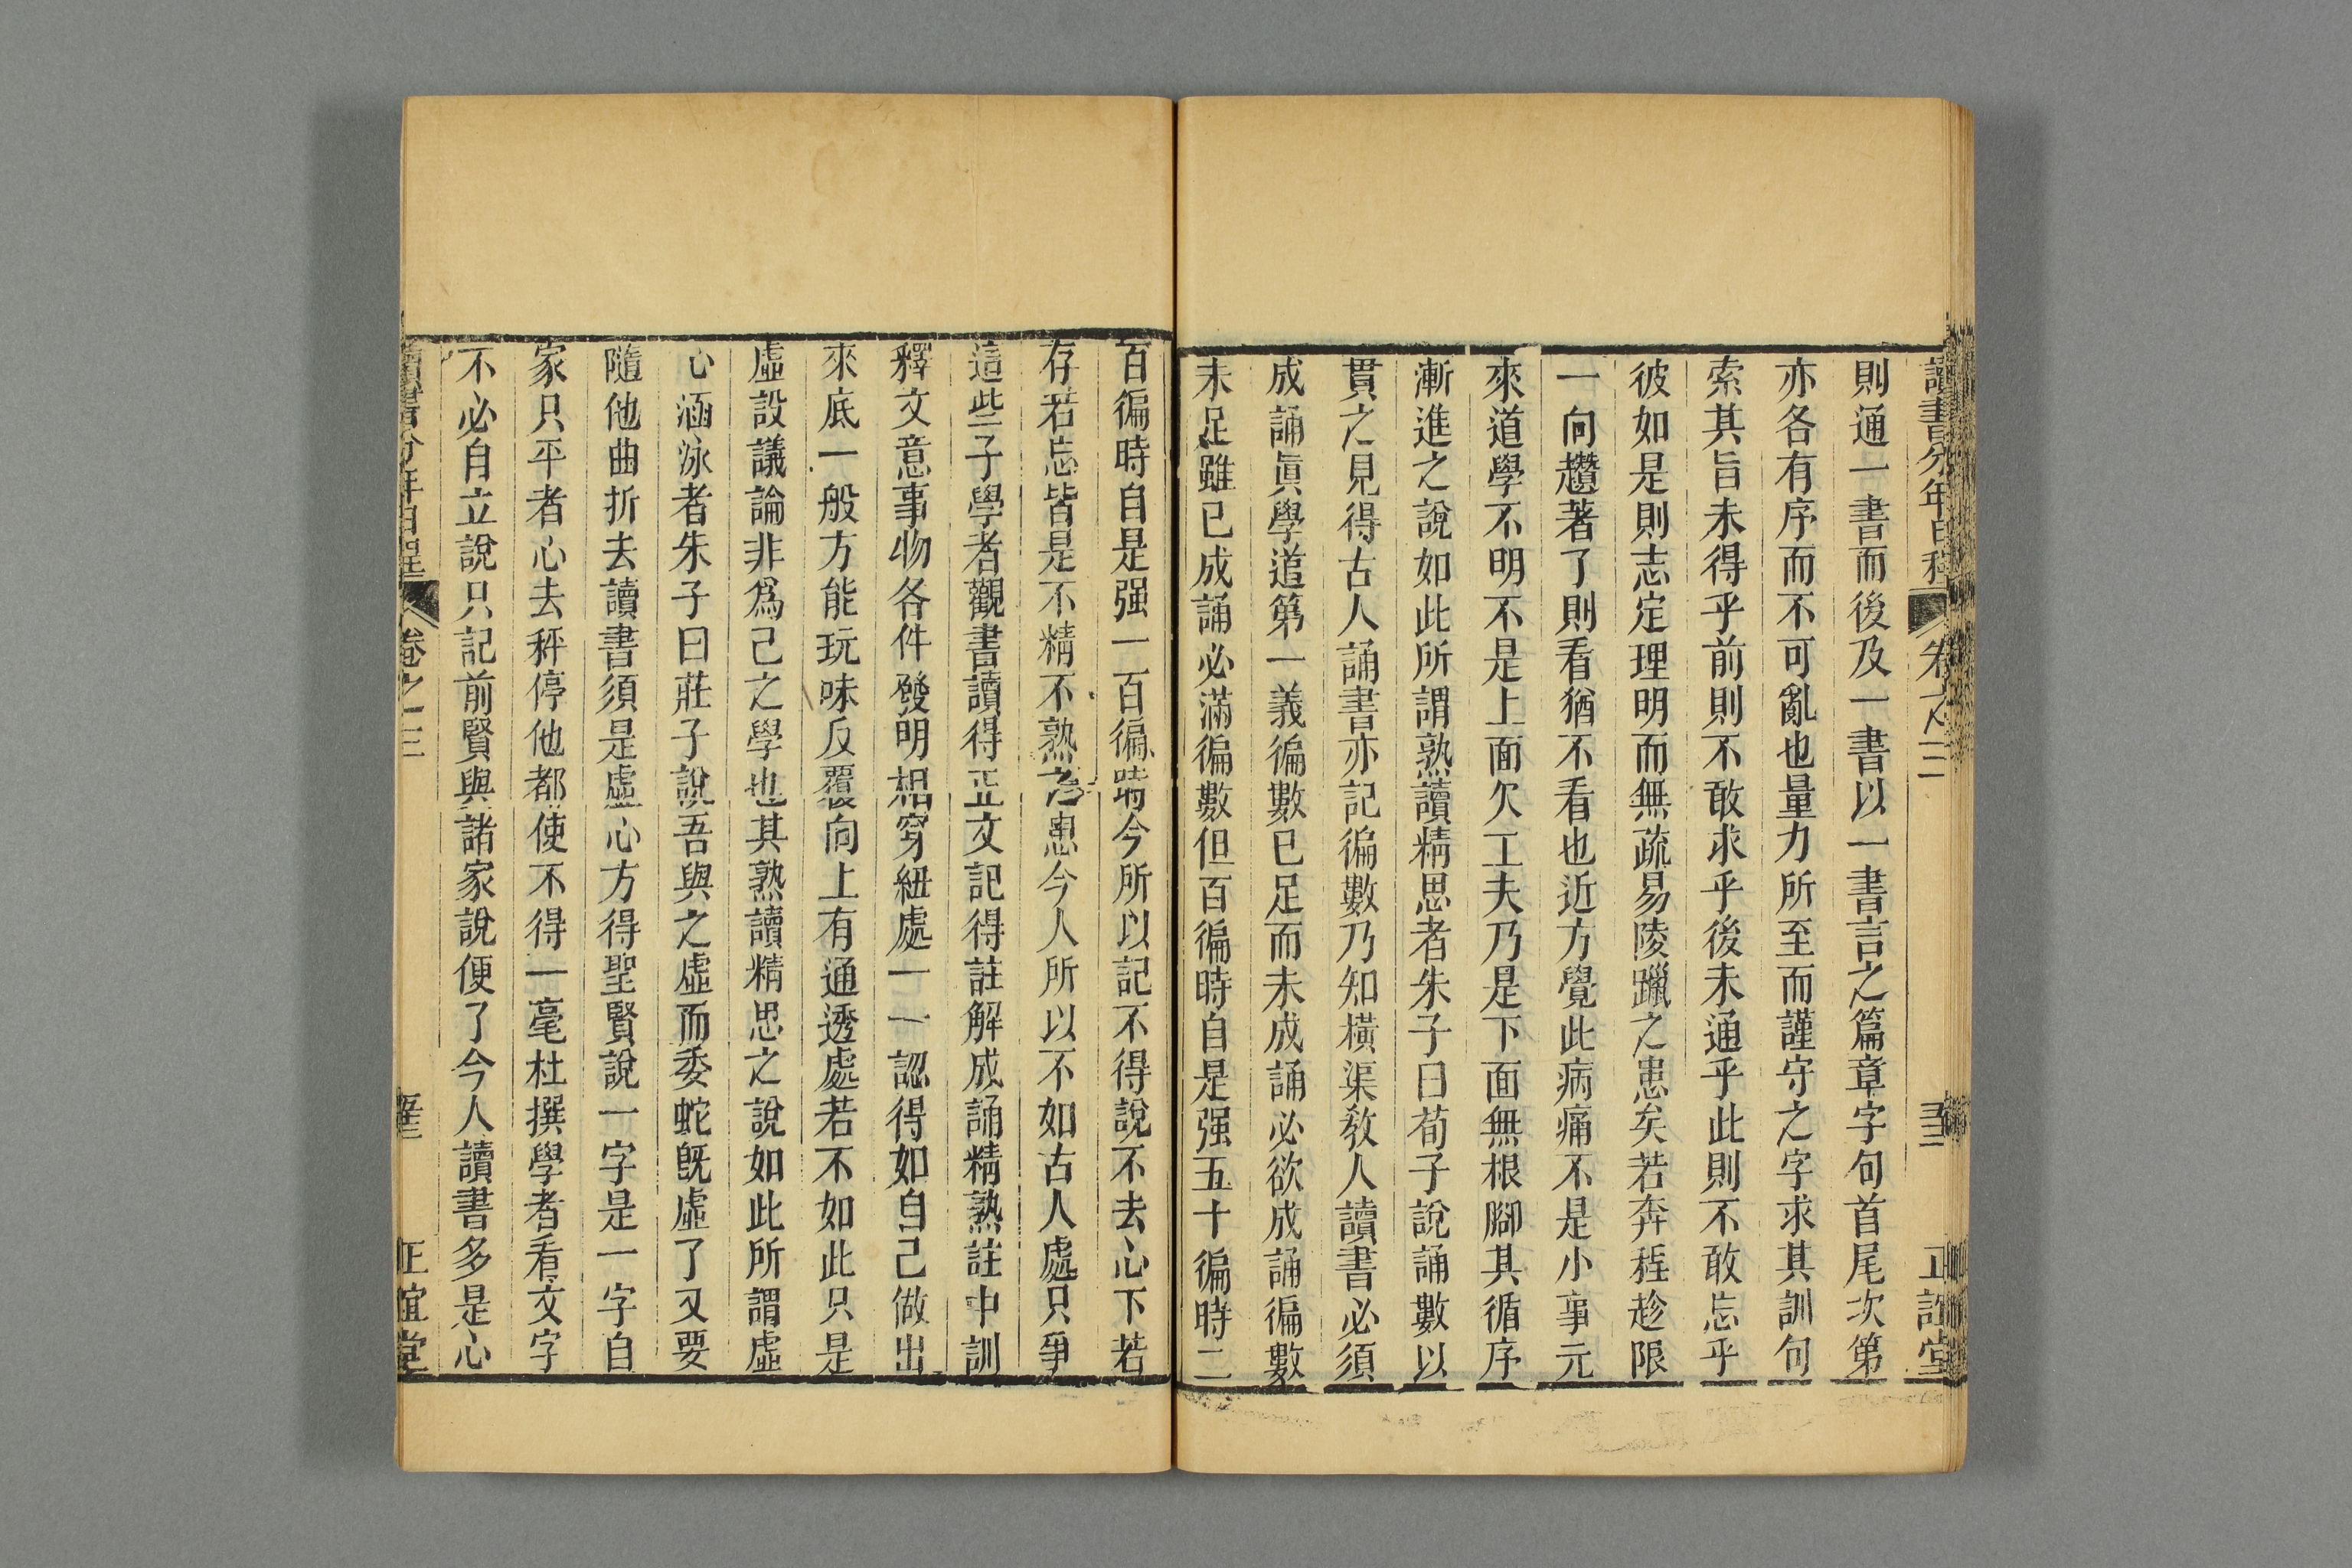 讀書分年日程 卷之三 正誼堂
則通一書而後及一書以一書言之篇章字句首尾次第
亦各有序而不可亂也量力所至而謹守之字求其訓句
索其旨未得乎前則不敢求乎後未通乎此則不敢忘乎
彼如是則志定理明而無疏易陵躐之患矣若奔程趁限
一向趲著了則看猶不看也近方覺此病痛不是小事元
來道學不明不是上面欠工夫乃是下面無根腳其循序
漸進之說如此所謂熟讀精思者朱子曰荀子說誦數以
貫之見得古人誦書亦記徧數乃知橫渠敎人讀書必須
成誦眞學道第一義徧數已足而未成誦必欲成誦徧數
未足雖已成誦必滿徧數但百徧時自是强五十徧時二
百徧時自是强一百徧時今所以記不得說不去心下若
存若忘皆是不精不熟之患今人所以不如古人處只爭
這些子學者觀書讀得正文記得註解成誦精熟註中訓
釋文意事物各件發明相穿紐處一一認得如自己做出
來底一般方能玩味反覆向上有通透處若不如此只是
虛設議論非爲己之學也其熟讀精思之說如此所謂虛
心涵泳者朱子曰莊子說吾與之虛而委蛇旣虛了又要
隨他曲折去讀書須是虛心方得聖賢說一字是一字自
家只平者心去秤停他都使不得一毫杜撰學者看文字
不必自立說只記前賢與諸家說便了今人讀書多是心
讀書分年日程 卷之三 正誼堂